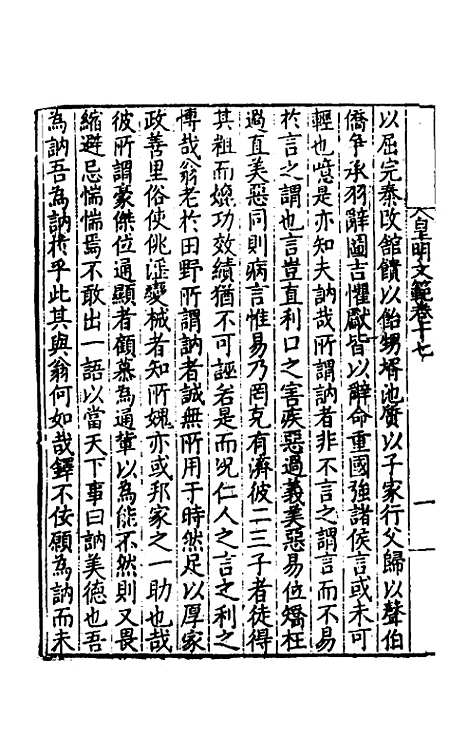 皇明文範卷十七
一
以屈完秦改館饋以飴甥壻池質以子家行父歸以聲伯
僑爭承羽辭圖吉懼獻皆以辭命重國強諸侯言或未可
輕也噫是亦知夫訥哉所謂訥者非不言之謂言而不易
於言之謂也言豈直利口之害疾惡過義美惡易位矯枉
過直美惡同則病言惟易乃罔克有濟彼二三子者徒得
其粗而燥功效績猶不可誣若是而况仁人之言之利之
博哉翁老於田野所謂訥者誠無所用于時然足以厚家
政善里俗使佻滙變械者知所媿亦或邦家之一助也哉
彼所謂豪傑位通顯者顧慕為通輩以為能不然則又畏
縮避忌惴惴焉不敢出一語以當天下事曰訥美德也吾
為訥吾為訥於乎此其與翁何如哉鐸不佞願為訥而未